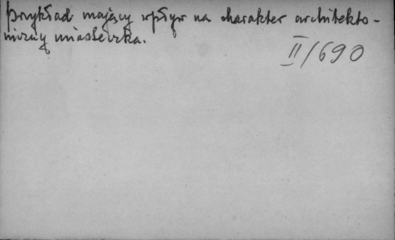 przykład mający wpływ na charakter architekto-
niczny miasteczka.
II/690